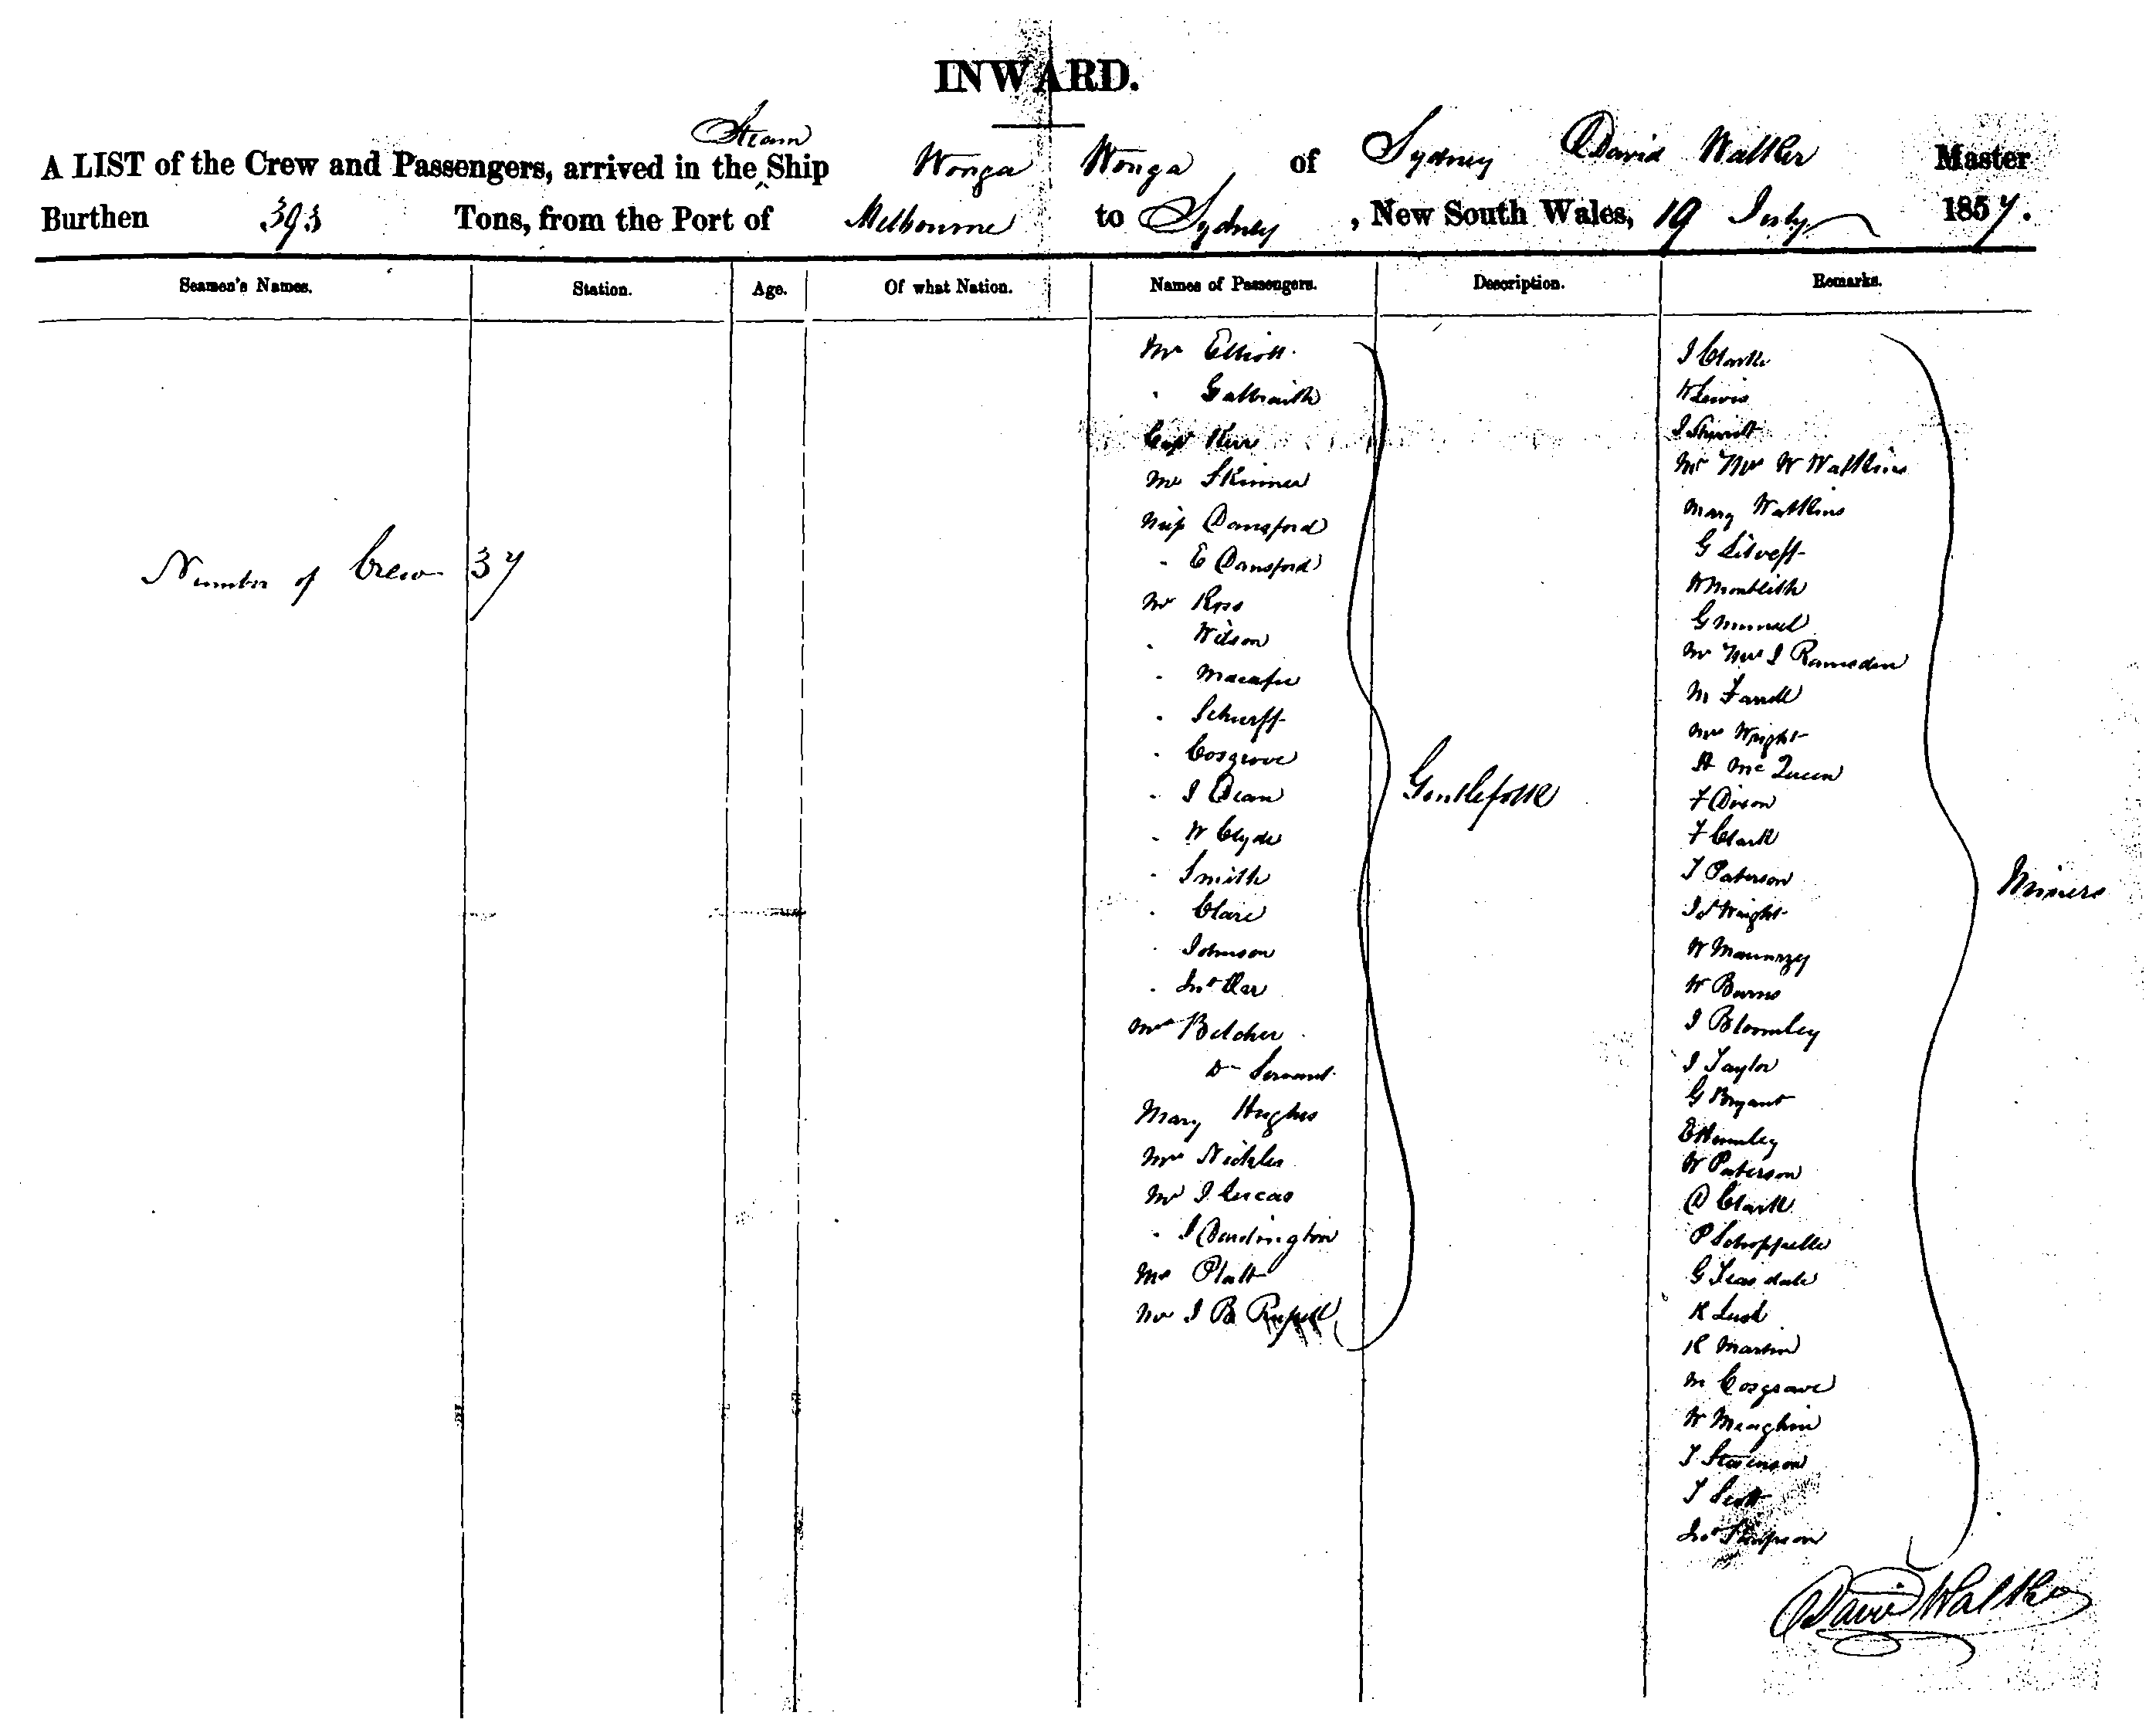 INWARD.
Steam
A LIST of the Crew and Passengers, arrived in the ^ Ship Wonga Wonga of Sydney David Walker Master
Burthen 393 Tons, from the Port of Melbourne to Sydney, New South Wales, 19 July 1857.
Seamen's Names. Station. Age. Of what Nation. Names of Passengers. Description. Remarks.
Number of Crew 37
Mr Elliott
" Galbraith
Capt Kerr
Mr Skinner
Miss Dansford
" E Dansford
Mr Ross
" Wilson
" Macafee
" Scherff
" Cosgrove
" J Dean
" W Clyde
" Smith
" Clare
" Johnson
" Jno
Mrs Belcher
Do Servant
Mary Hughes
Mrs Nickles
Mr J Lucas
" J Dardington
Mr Platt
Mr J B Russell
Gentlefolk
J Clarke
W Lewis
J
Mr Mrs W Watkins
Mary Watkins
G
W Montieth
G
Mr Mrs J Ramsden
M Farrell
Mrs Wright
A McQueen
F Dixon
F Clark
T Paterson
Wright
W
W Burns
J Bloomley
J Taylor
G Bryant
E
W Paterson
D Clark
P
G Teasdale
R Lusk
R Martin
M Cosgrave
W Meaghin
T Stevenson
T Scott
Jno Thompson
Miners
David Walker